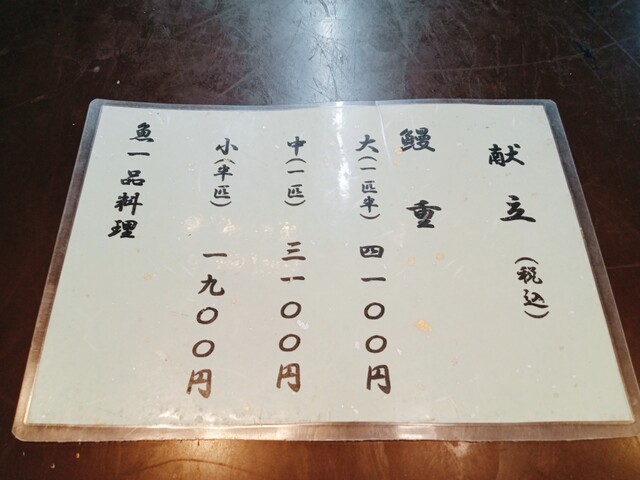 献立（税込）
鰻重
大（一匹半）四一〇〇円
中（一匹）三一〇〇円
小（半匹）一九〇〇円
魚一品料理